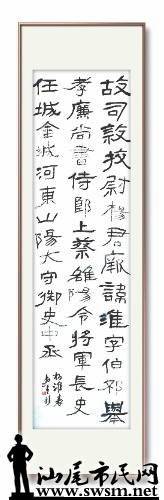 故司隷校尉楊君厥諱淮字伯邳舉
孝廉尚書侍郎上蔡雒陽令將軍長史
任城金城河東山陽大守御史中丞
楊淮表
汕尾市民网
www.swsm.net